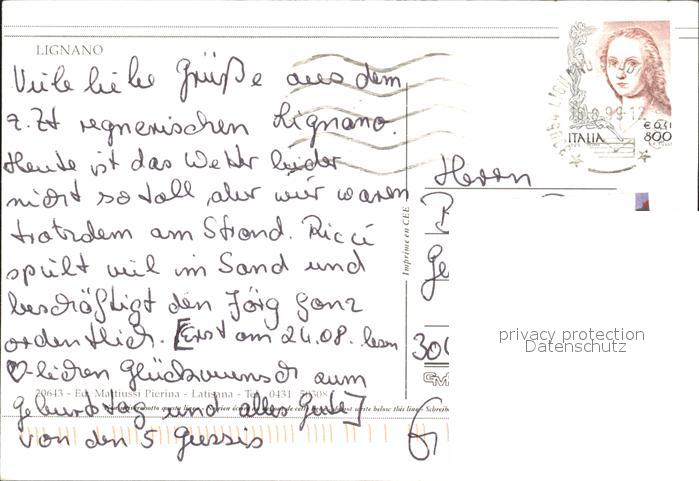 LIGNANO
Viele liebe Grüße aus dem
z.Zt regnerischen Lignano.
Heute ist das Wetter leider
nicht so toll, aber wir waren
trotzdem am Strand. Ricci
spielt viel im Sand und
beschäftigt den Jörg ganz
ordentlich. [Erst am 24.08. lesen
♡-lichen Glückwunsch zum
20643 - Ed. Mattiussi Pierina - Latisana - Tel. 0431
Geburtstag und alles Gute]
von den 5
Imprimé en CEE
ITALIA
€ 0,41
800
LIGNANO
Herrn
privacy protection
Datenschutz
300